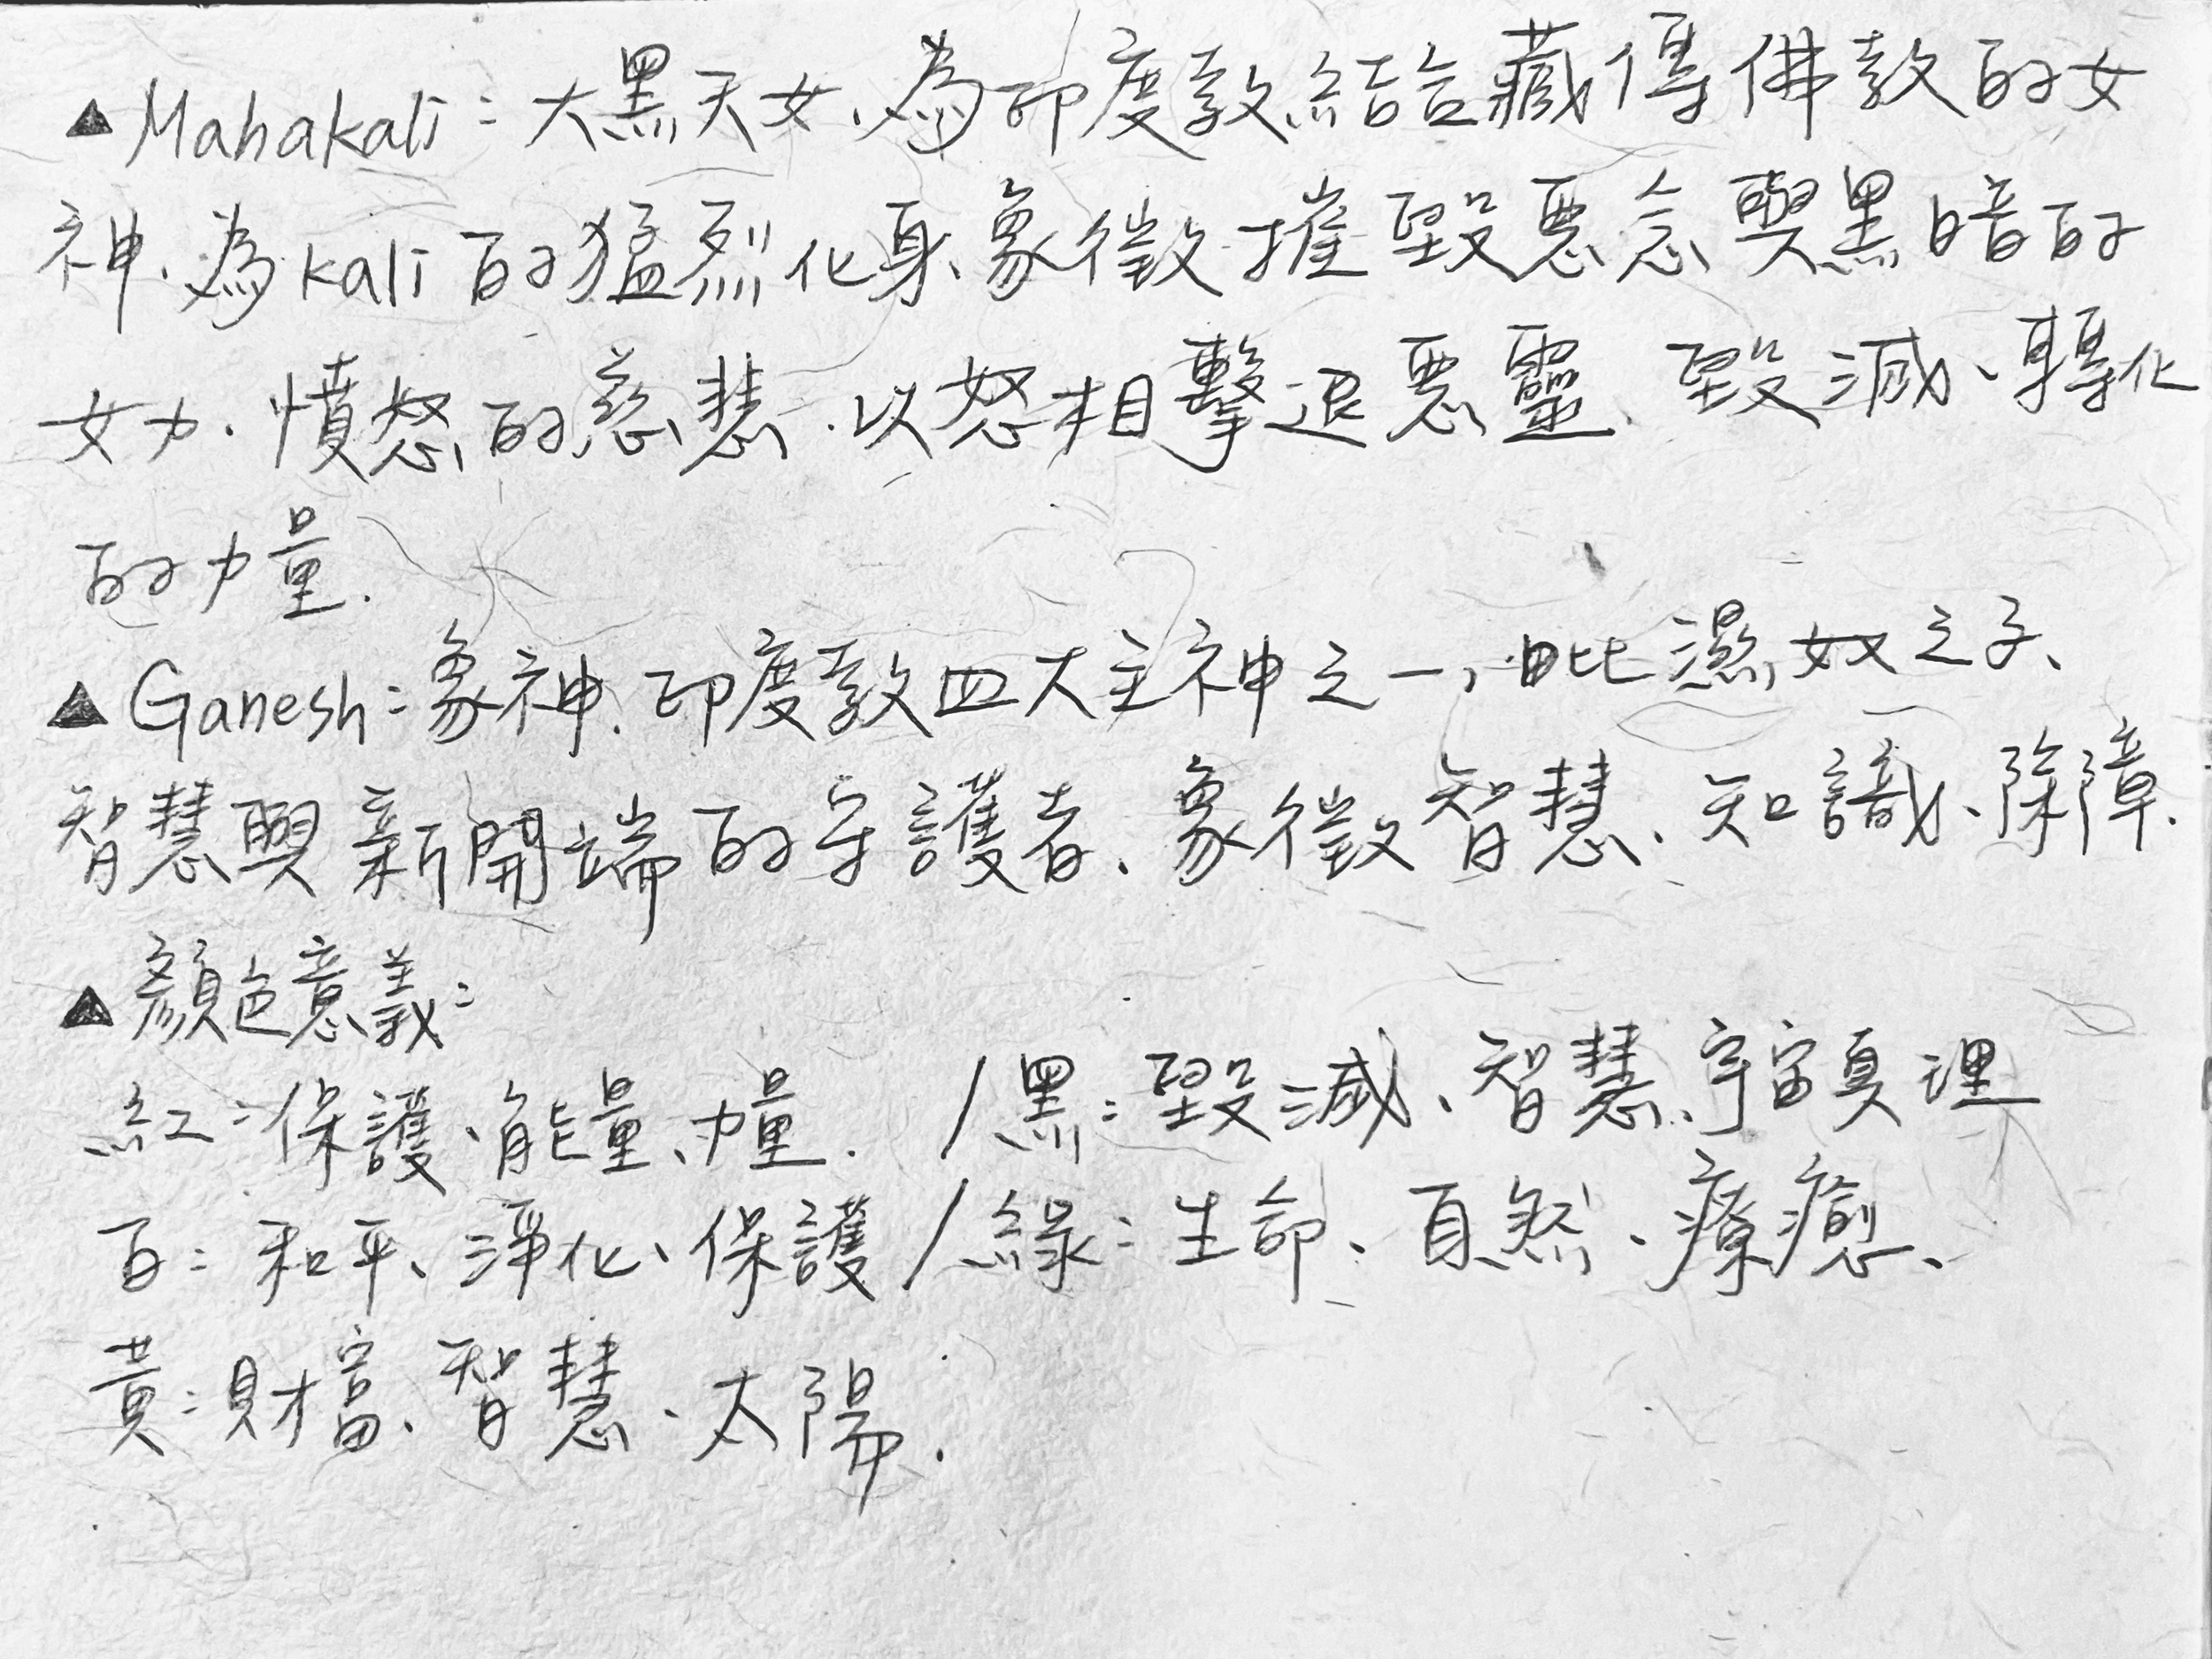 ▲Mahakali:大黑天女、為印度教結合藏傳佛教的女
神、為kali的猛烈化身、象徵摧毀惡念與黑暗的
女力、憤怒的慈悲、以怒相擊退惡靈、毀滅、轉化
的力量.
▲Ganesh:象神、印度教四大主神之一,毗濕奴之子、
智慧與新開端的守護者、象徵智慧、知識、除障.
▲顏色意義:
紅:保護、能量、力量. /黑:毀滅、智慧、宇宙真理
白:和平、淨化、保護 /綠:生命、自然、療癒、
黃:財富、智慧、太陽.